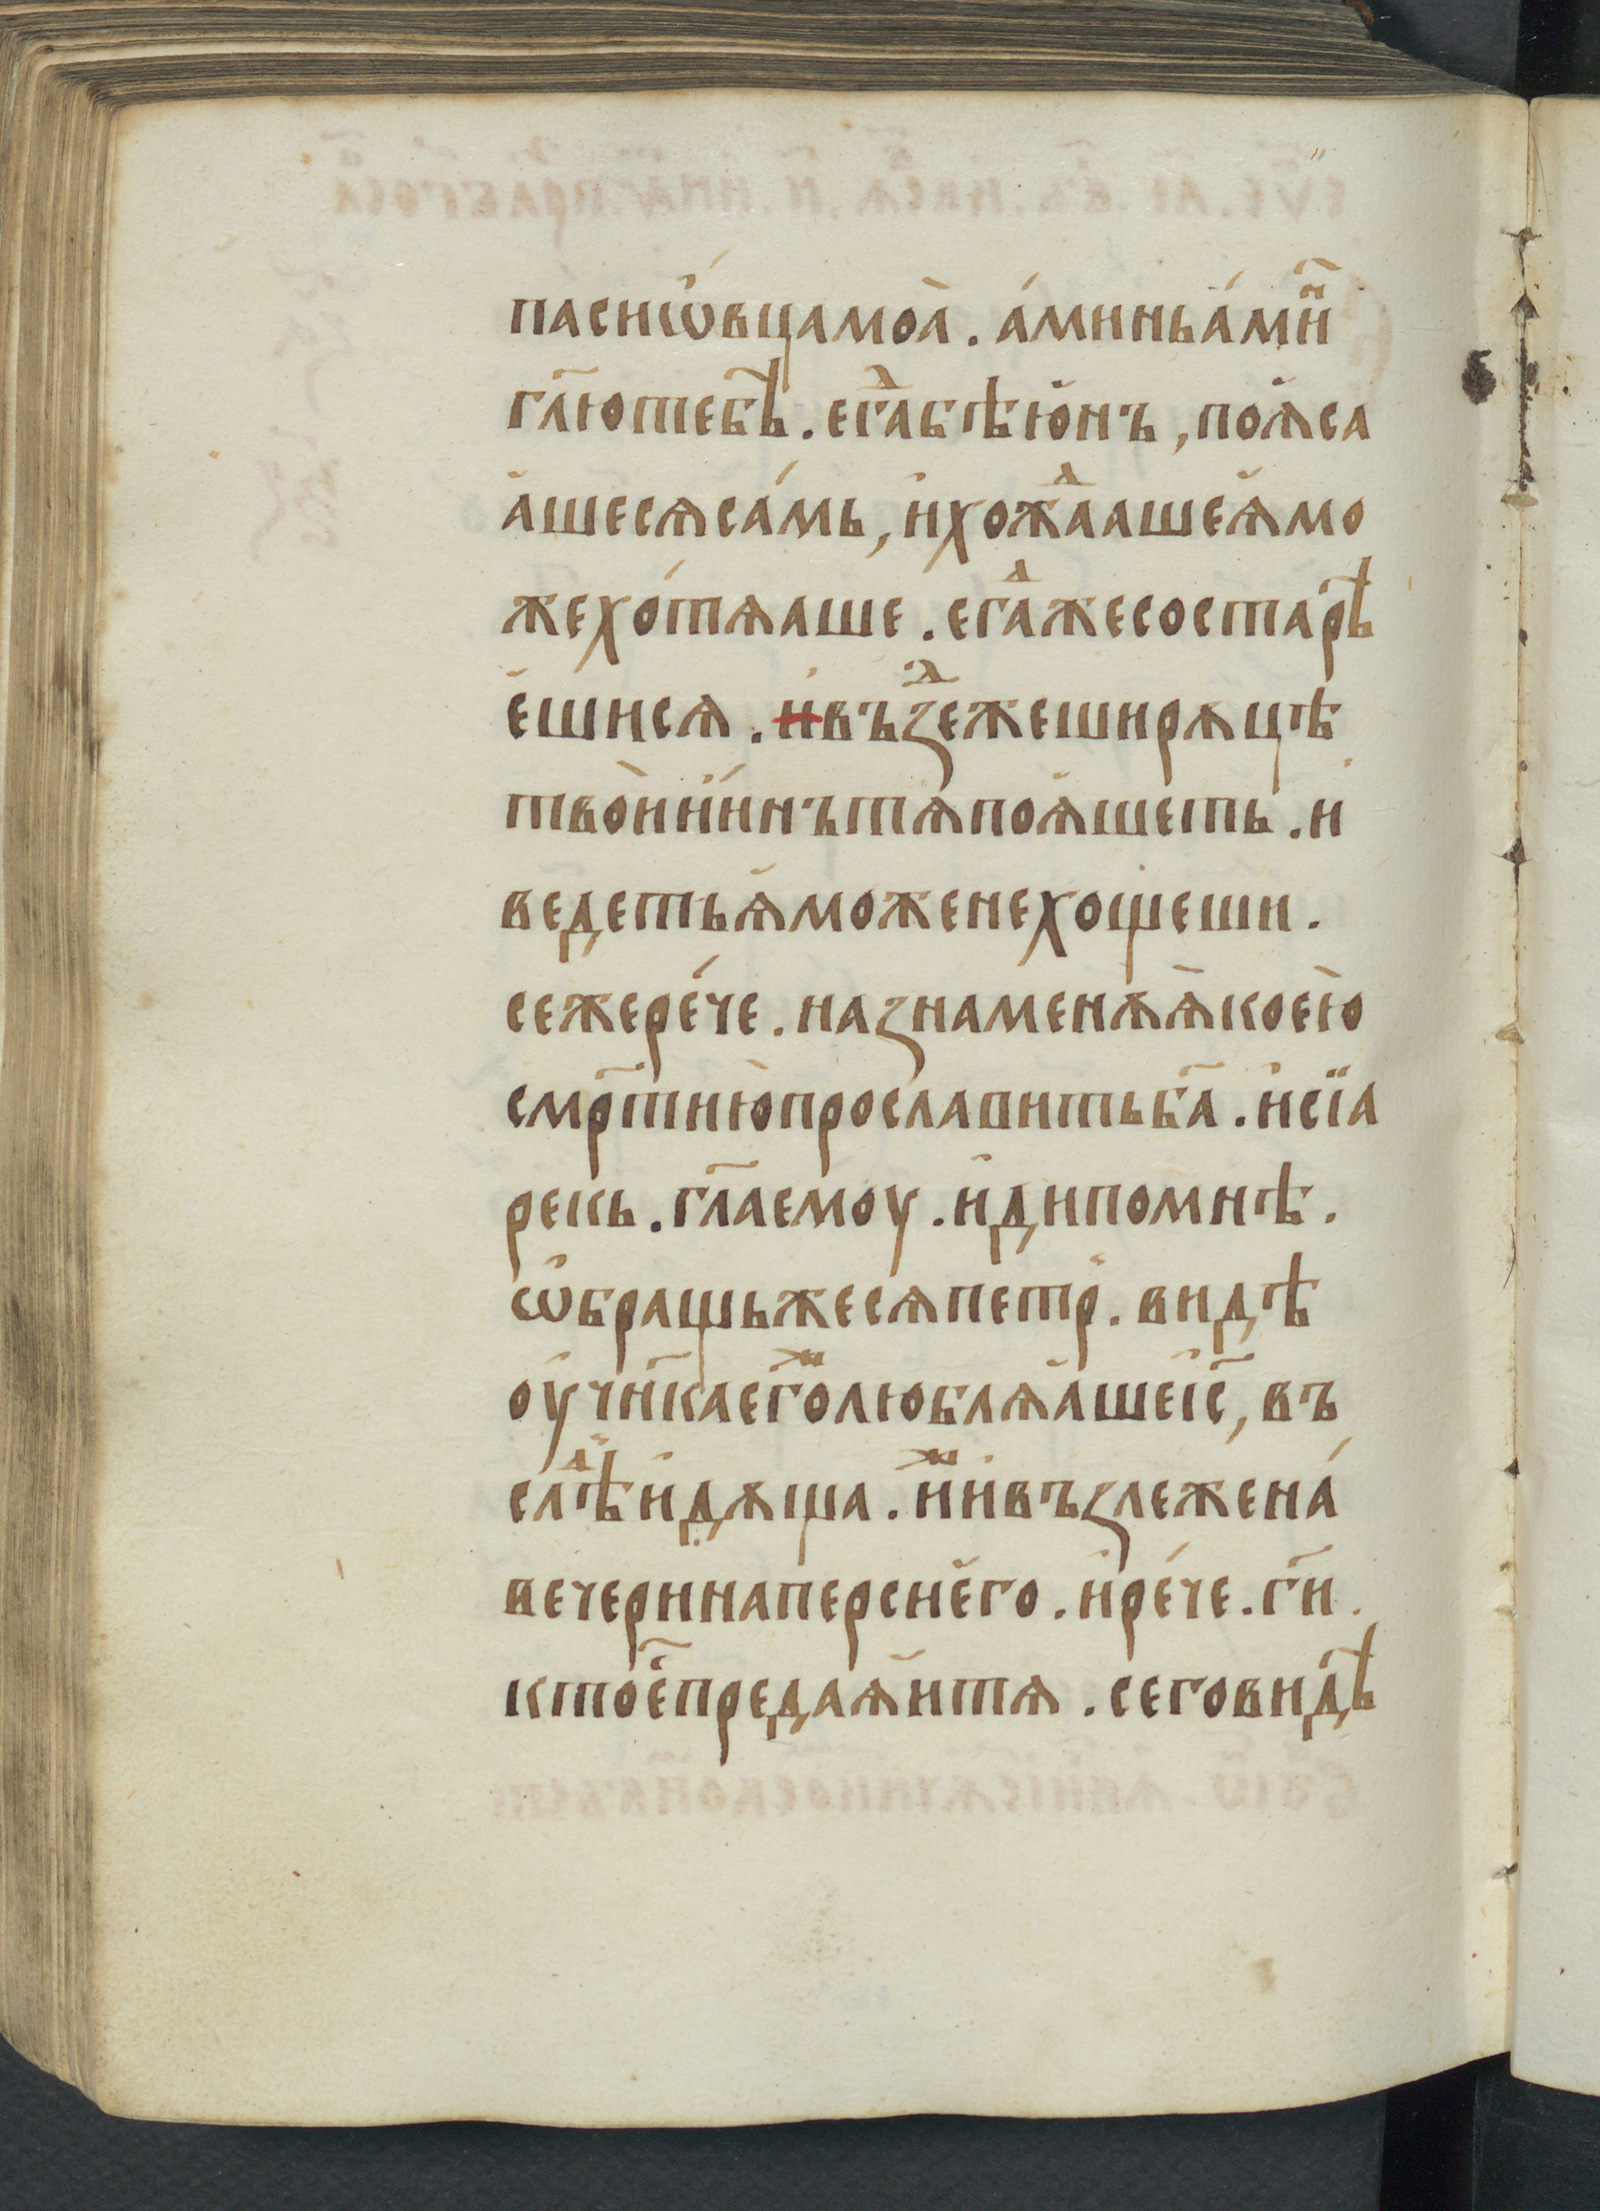 пасиѡ҆́вцамоа̀ . а҆́миньа҆́ми҃н
гл҃ютебѣ̀ . е҆гдⷶ҇абѣю҆нъ , поѧ҆са
а҆шесѧса́мь , и҆хож́дⷣаашеѧ҆мо
жехо́тѧаше . е҆гдⷣажесостарѣ
е҆шисѧ . и҆въздⷣежеширѫцѣ
твоѝ и҆и҆́нътѧпоѧ҆шеть . и҆
ведетьѧ҆моженехощеши .
сежере́че . назнаменѫѧ҆̀коею҆̀
смр҃тию҆̀прославитьб҃а . и҆сїа
рекь . гл҃аемоу . и҆дипомнѣ .
ѡ҆бращьжесѧпетр̾ . видѣ
оу҆чн҃каего҆́жⷤлюблѧа҆шеі҆с҃ , въ
слѣдⷣи҆дѫща . и҆́жⷤи҆възлежена́
вечеринаперсие҆го . и҆ре́че . гⷭ҇и .
ктое҆҃предаѧ҆итѧ . сеговидѣ̀